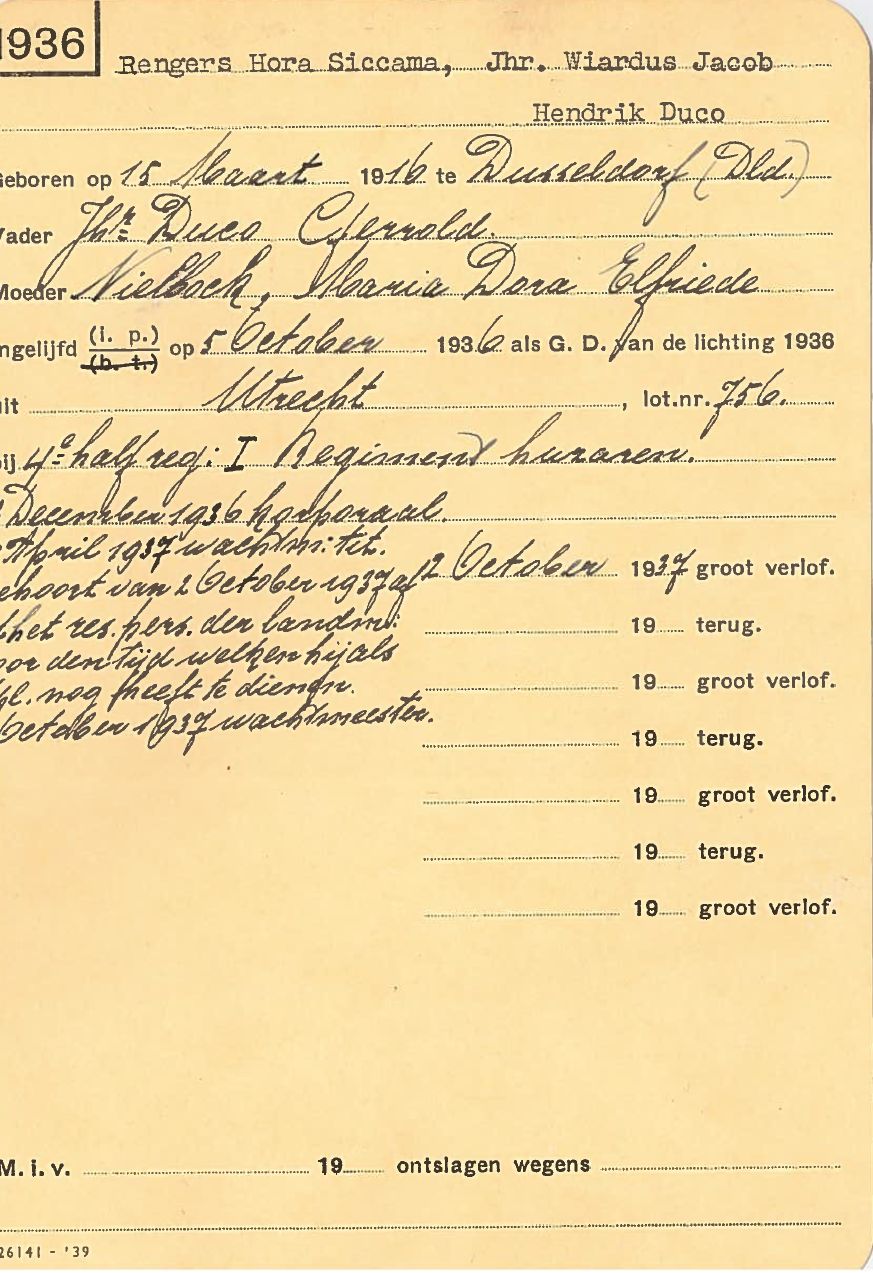 1936
Rengers Hora Siccama, Jhr. Wiardus Jacob
Hendrik Duco
eboren op 15 Maart 1916 te Dusseldorf (Dld.)
Vader Jhr Duco Gerrold.
Moeder Nielbock, Maria Dora Elfriede
ngelijfd (i. p.) (b. t.) op 5 October 1936 als G. D. van de lichting 1936
uit Utrecht, lot.nr. 756.
bij 4e half reg: I Regiment huzaren.
December 1936 korporaal.
April 1937 wachtm: tit.
ehoort van 2 October 1937 af
het res. pers. der landm:
oor den tijd welken hij als
pl. nog heeft te dienen.
October 1937 wachtmeester.
2 October 1937 groot verlof.
19 terug.
19 groot verlof.
19 terug.
19 groot verlof.
19 terug.
19 groot verlof.
M. i. v. 19 ontslagen wegens
26141 - '39